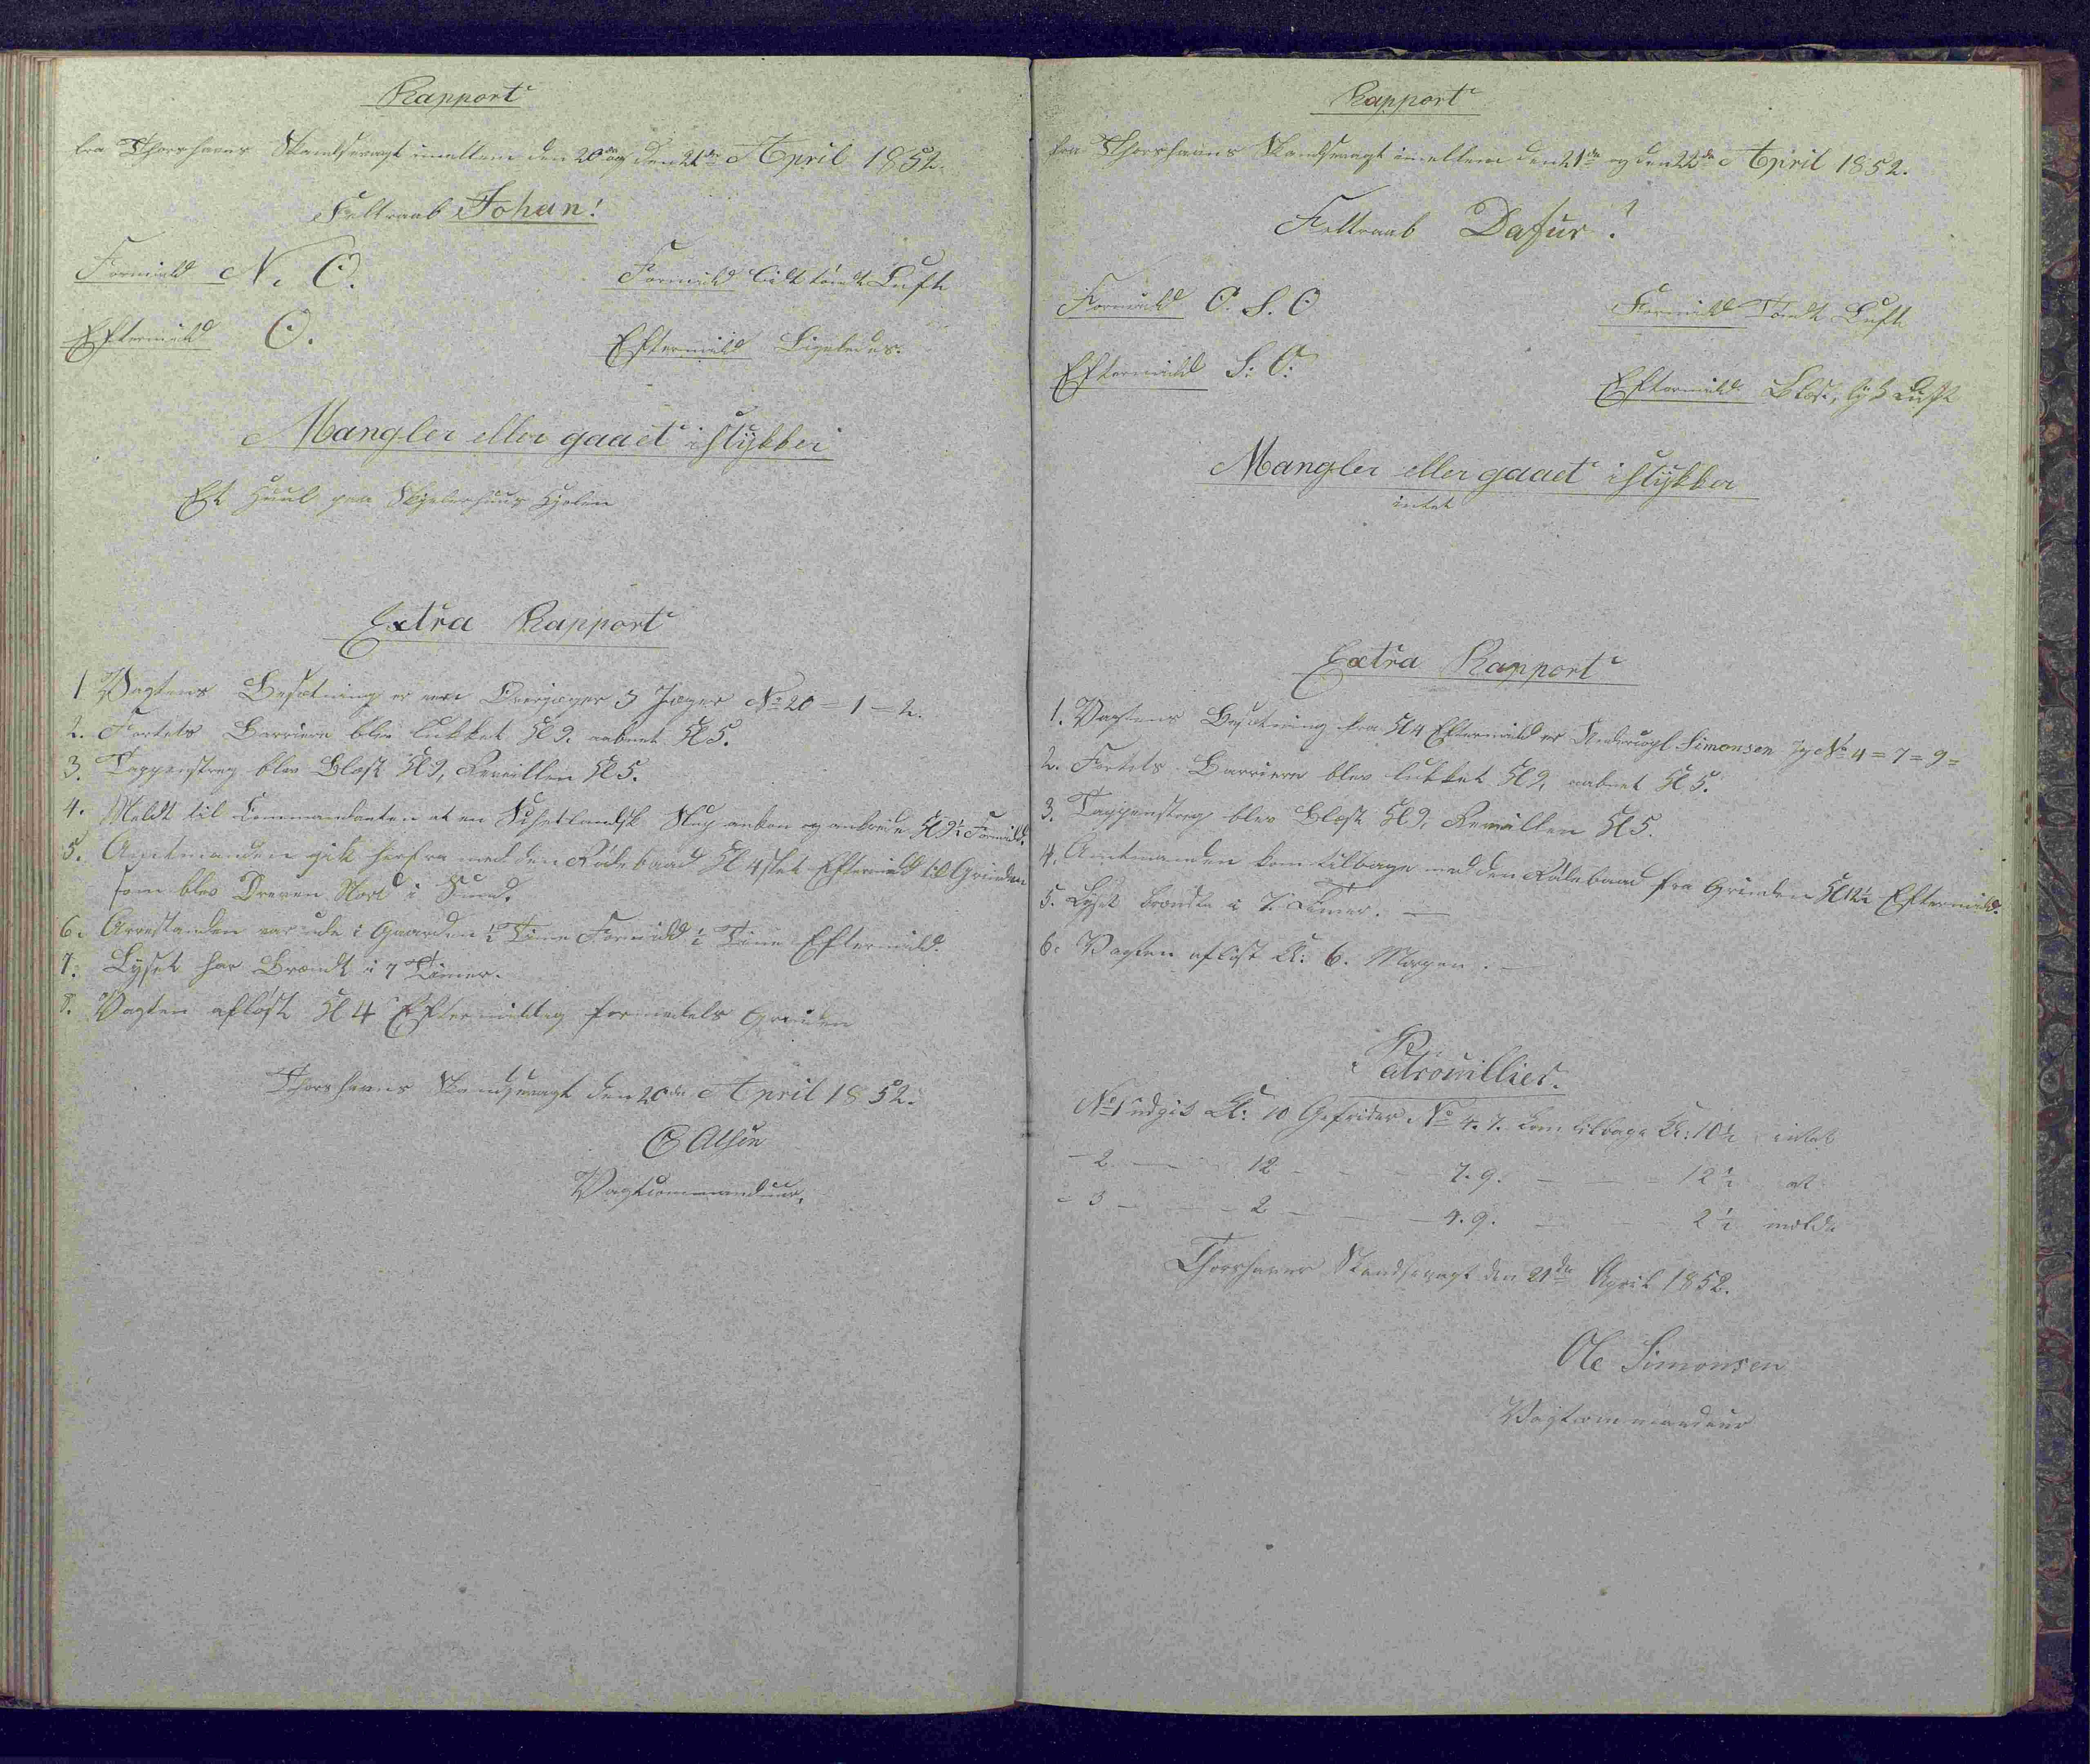 Rapport
fra Thorshavns Skandsevagt imellem den 20de og den 21de April 1852.
Feltraab Johan!
Formidd N. O.
Formidd lidt tændt Luft
Eftermidd O.
Eftermidd Ligeledes.
Mangler eller gaaet i stykker
Et Huul paa
Extra Rapport
1 Vagtens Besætning er Overjæger 3 Jæger No 20 = 1 = 2.
2. Fortets Barriere blev lukket Kl 9. aabnet Kl 5.
3. Tappenstreg blev Blæst Kl 9, Reveillen Kl 5.
4. Meldt til Commandanten at en Schetlandsk Slup ankom og ankrede Kl 9½ Formidd.
5. Amtmanden gik herfra med den Baad Kl 4 Eftermidd til Grinden
som blev Dreven Nord i Sund.
6. Arrestanden var ude i Gaarden ½ Time Formidd ½ Time Eftermidd.
7. Lyset har Brændt i 7 Timer.
8. Vagten afløst Kl 4 Eftermiddag formedelst Grinden
Thorshavns Skandsevagt den 20de April 1852.
Olsen
Vagtcommandeur.
Rapport
fra Thorshavns Skandsevagt imellem den 21de og den 22de April 1852.
Feltraab Dafur!
Formidd O. S. O
Formidd Luft
Eftermidd S: O:
Eftermidd Blæst, tyk Luft
Mangler eller gaaet i stykker
intet
Extra Rapport
1. Vagtens Besætning fra Kl 4 Eftermidd er Undercopl Simonsen Jg No 4 = 7 = 9 =
2. Fortets Barriere blev lukket Kl 9, aabnet Kl 5.
3. Tappenstreg blev Blæst Kl 9, Reveillen Kl 5.
4. Amtmanden kom tilbage med den Baad fra Grinden Kl 12½ Eftermidd.
5. Lyset brændte i 7. Timer. —
6. Vagten afløst Kl: 6. Morgen. —
Patrouillier.
No 1 udgik Kl: 10 Gefreider No 4. 7. kom tilbage Kl: 10½ intet
— 2 — 12 — — 7. 9. — — 12½ at
— 3 — 2 — — 4. 9. — — 2½ melde
Thorshavns Skandsevagt den 21de April 1852.
Ole Simonsen
Vagtcommandeur